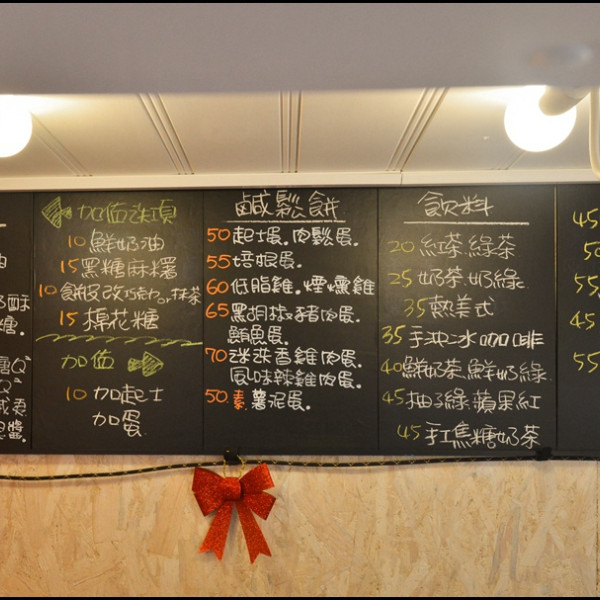 油
奶酥
糖.
糖Q
Q²
醬.
加值选項
10 鮮奶油
15 黑糖麻糬
10 餅皮改巧克力.抹茶
15 棉花糖
加值
10 加起士
加蛋.
鹹鬆餅
50 起士蛋.肉鬆蛋.
55 培根蛋.
60 低脂雞.煙燻雞
65 黑胡椒豬肉蛋.
鮪魚蛋.
70 迷迭香雞肉蛋.
風味辣雞肉蛋.
50 素.薯泥蛋.
飲料
20 紅茶.綠茶
25 奶茶.奶綠
35 熱美式
35 手沖冰咖啡
40 鮮奶茶.鮮奶綠
45 柚子綠.蘋果紅
45 手工焦糖奶茶
45
50
55
45
55